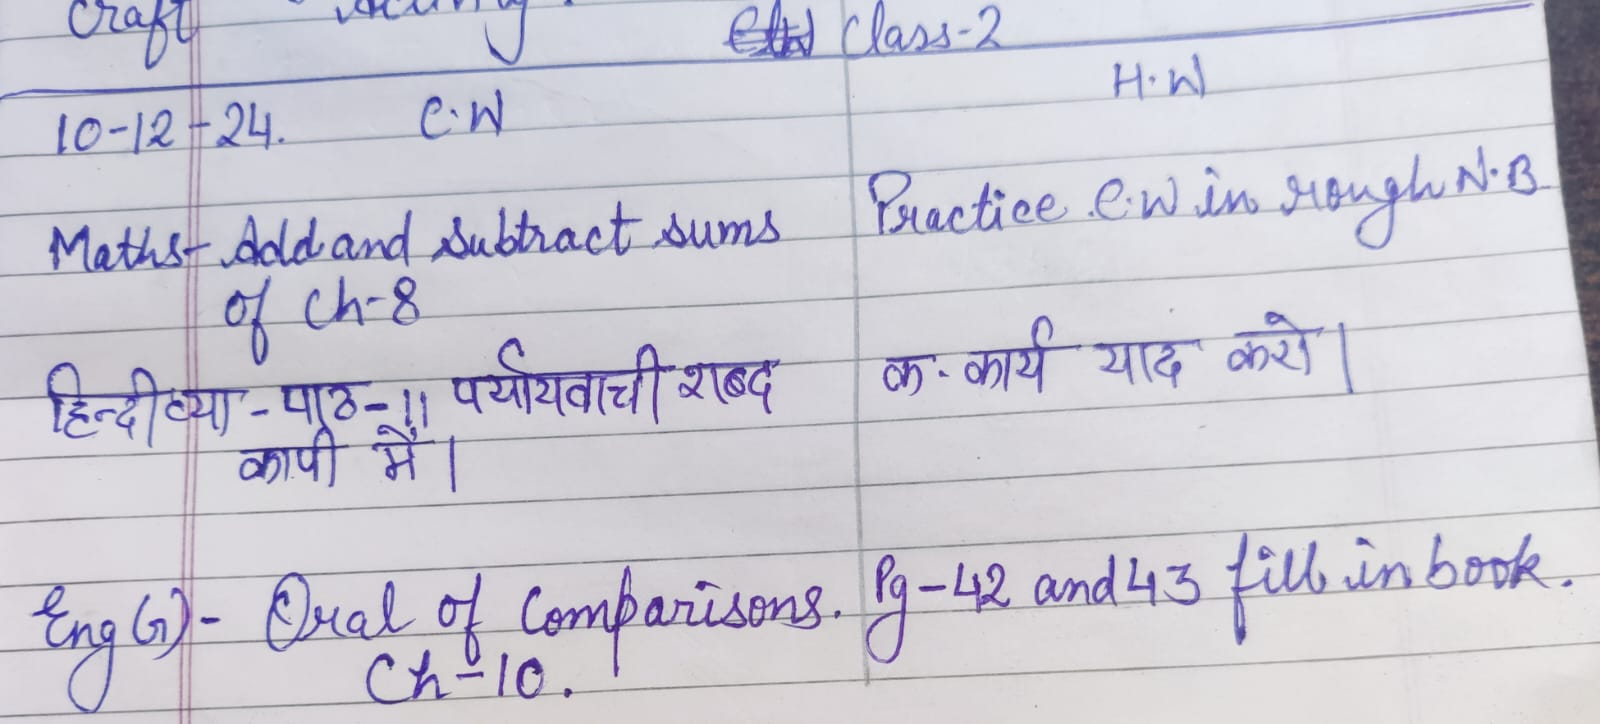 Craft
Class-2
10-12-24. C.W H.W
Maths- Add and Subtract sums Practice C.W in rough N.B
of Ch-8
हिन्दी व्या - पाठ-11 पर्यायवाची शब्द क. कार्य याद करो।
कापी में।
Eng (G)- Oral of Comparisons. Pg-42 and 43 fill in book.
Ch-10.